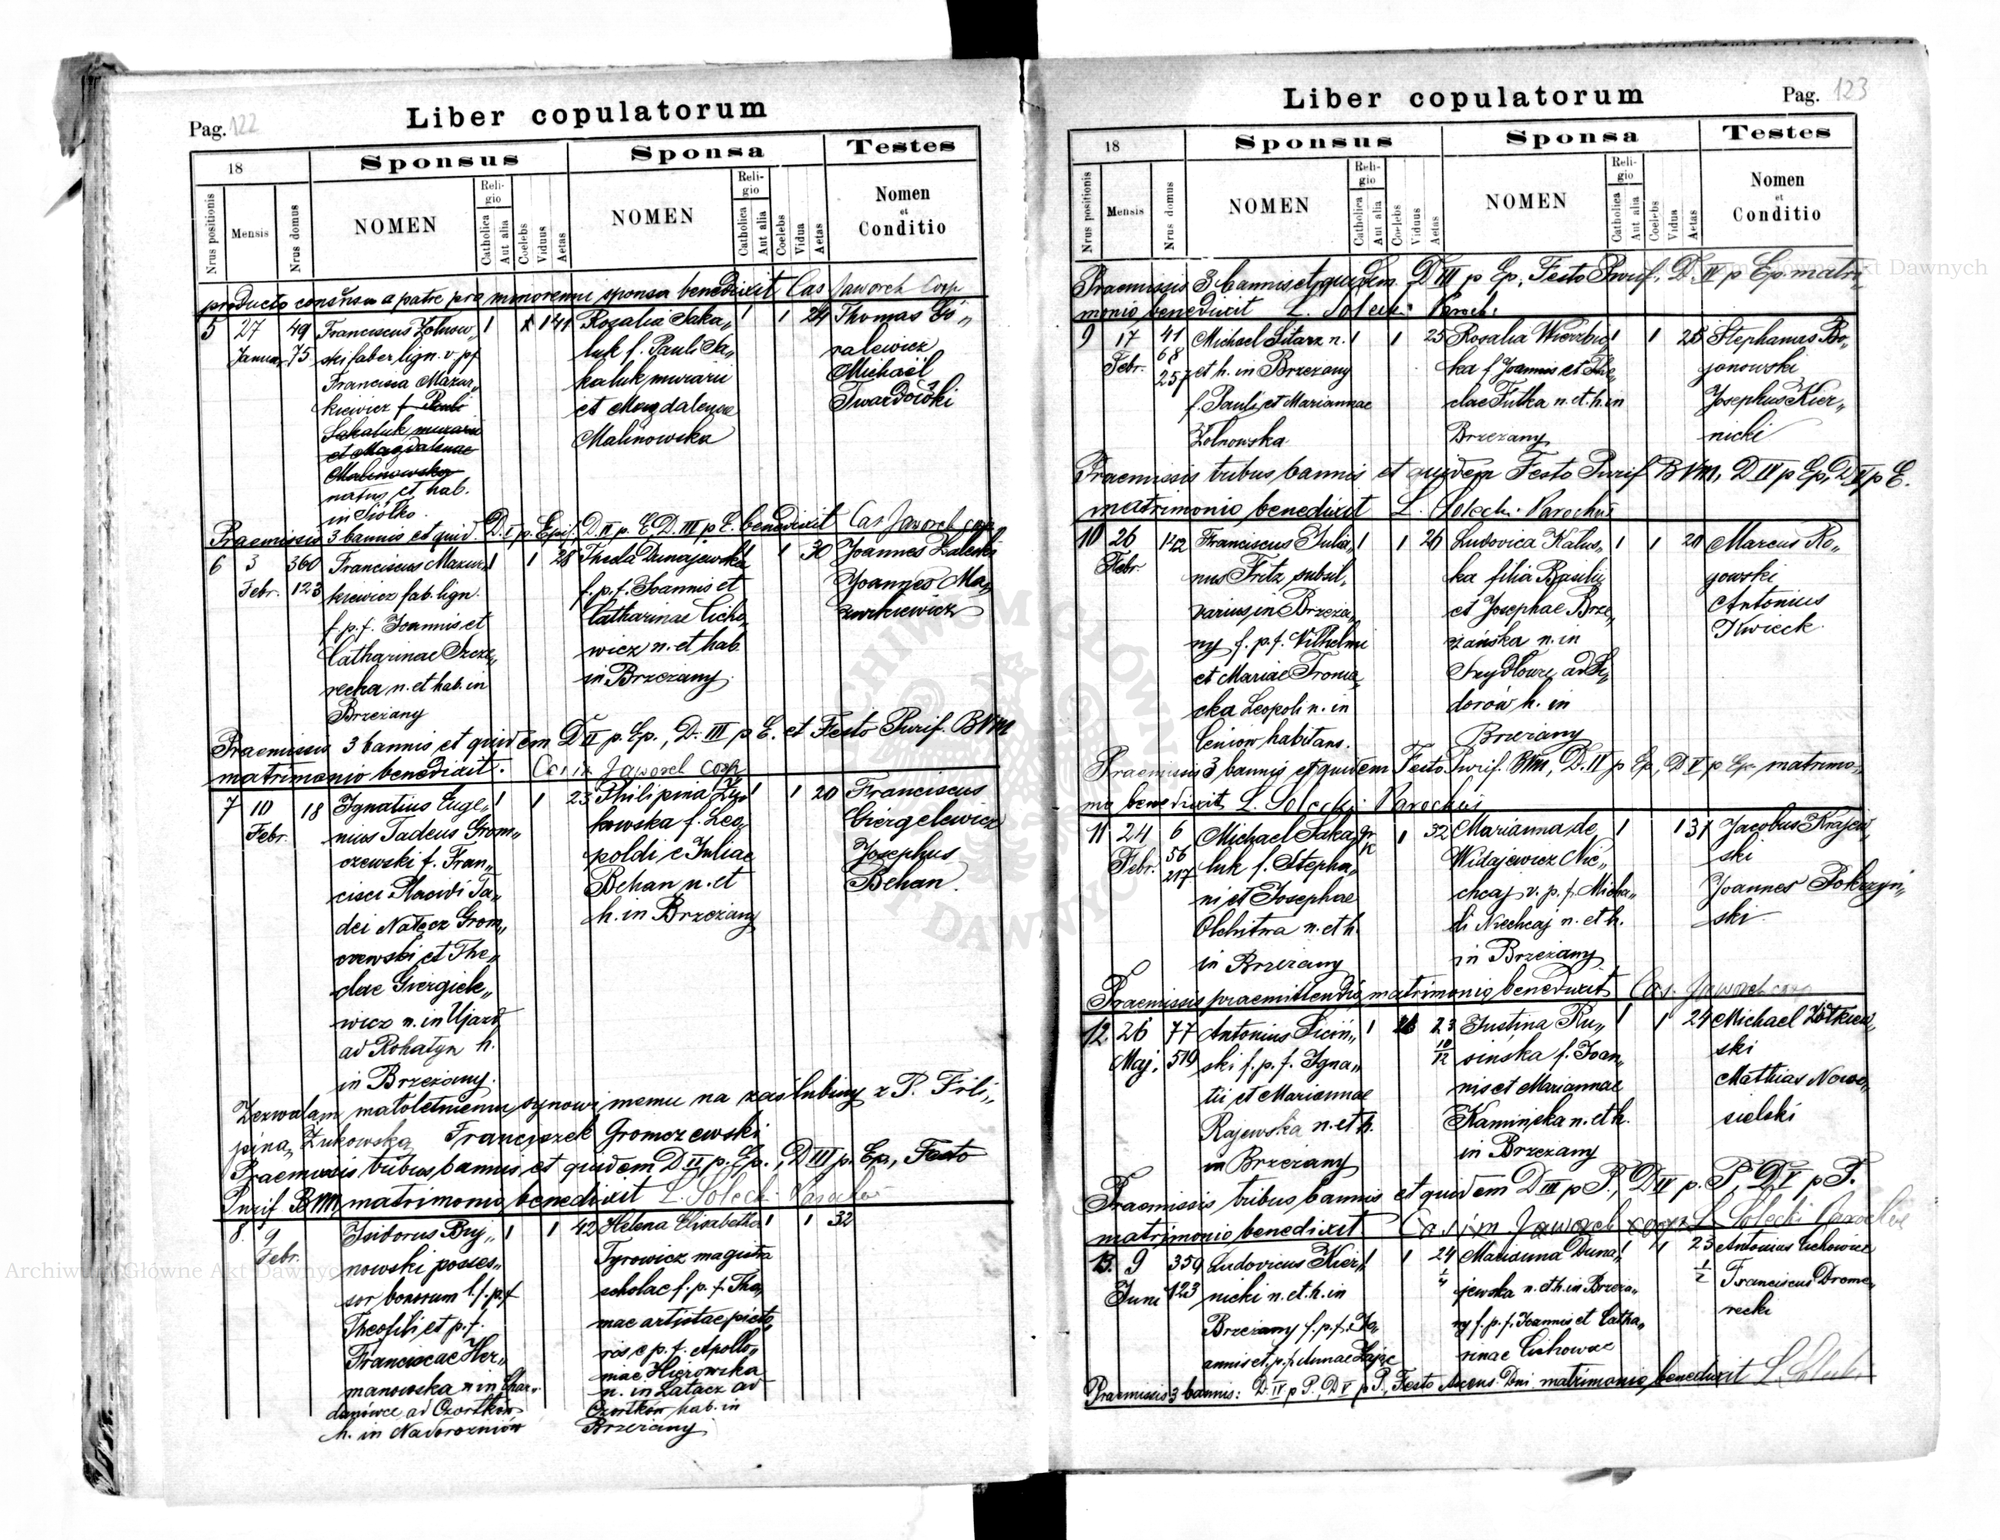 Pag. 122
Liber copulatorum
18
Sponsus
Sponsa
Testes
Nrus positionis
Mensis
Nrus domus
NOMEN
Religio
Catholica
Aut alia
Coelebs
Viduus
Aetas
NOMEN
Religio
Catholica
Aut alia
Coelebs
Vidua
Aetas
Nomen
et
Conditio
producto consensu a patre pro minorenni sponsa benedixit Cas Jaworek Coop
5 27 49
Januar 75
Franciscus Żołnow„
ski faber lign. v. p f
Francisca Mazur„
kiewicz f Pauli
Sakaluk murarii
et Magdalenae
Malinowska
natus et hab.
in Siołko
1 1 41
Rozalia Saka„
luk f. Pauli Sa„
kaluk murarii
et Magdalenae
Malinowska
1 1 24
Thomas Gó„
ralewicz
Michaël
Twardowski
Praemissis 3 bannis et quid. D. I p. Epif, D. II p. E. D. III p E. benedixit Cas Jaworek coop
6 3 360
Febr. 123
Franciscus Mazur„
kiewicz fab. lign.
f. p. f. Joannis et
Catharinae Szcze„
recka n. et hab. in
Brzeżany
1 1 28
Thecla Dunajewska
f. p. f. Joannis et
Catharinae Cicho„
wicz n. et hab.
in Brzeżany.
1 30
Joannes Zaleski
Joannes Ma„
zurkiewicz
Praemissis 3 bannis et quidem D II p. Ep., D. III p E. et Festo Purif. BVM
matrimonio benedixit. Casim Jaworek coop
7 10 18
Febr.
Ignatius Euge„
nius Tadeus Grom„
czewski f. Fran„
cisci Placidi Ta„
dei Nałęcz Grom„
czewski et The„
clae Giergiele„
wicz n. in Ujazd
ad Rohatyn h.
in Brzeżany.
1 1 23
Philipina Żu„
kowska f. Leo„
poldi e Juliae
Behan n. et
h. in Brzeżany
1 1 20
Franciscus
Giergelewicz
Josephus
Behan.
Zezwalam małoletniemu synowi memu na zaślubiny z P. Fili„
piną Żukowską Franciszek Gromczewski
Praemissis tribus bannis et quidem D II p. Ep., D III p. Ep, Festo
Purif BVM, matrimonio benedixit L. Solecki Parochus
8 9
Febr.
Isidorus Bry„
nowski posses„
sor bonorum l. f. p f
Theofili et p. f.
Franciscae Her„
manowska n in Char„
danówce ad Czortków
h. in Nadorożniów
1 1 42
Helena Elisabetha
Tyrowicz magistra
scholae f. p. f. Tho„
mae artistae picto„
ris e p. f. Apollo„
niae Hierowska
n. in Łatacz ad
Czortków hab. in
Brzeżany
1 1 32
Pag. 123
Liber copulatorum
18
Sponsus
Sponsa
Testes
Nrus positionis
Mensis
Nrus domus
NOMEN
Religio
Catholica
Aut alia
Coelebs
Viduus
Aetas
NOMEN
Religio
Catholica
Aut alia
Coelebs
Vidua
Aetas
Nomen
et
Conditio
Praemissis 3 bannis et quidem D III p Ep, Festo Purif., D. IV p Ep. matri„
monio benedixit L. Solecki Paroch.
9 17 41
Febr. 68
257
Michael Sitarz n.
et h. in Brzeżany
f. Pauli et Mariannae
Żołnowska
1 1 25
Rosalia Wierzbic„
ka f Joannis et The„
clae Futka n. et. h. in
Brzeżany
1 1 28
Stephanus Bo„
janowski
Josephus Kier„
nicki
Praemissis tribus bannis et quidem Festo Purif BVM, D IV p Ep, D V p E.
matrimonio benedixit L. Solecki Parochus
10 26 142
Febr.
Franciscus Julia„
nus Fritz subsil„
varius in Brzeża„
ny f. p. f. Vilhelmi
et Mariae Fronia„
cka Leopoli n. in
Ceniow habitans.
1 1 26
Ludovica Kalus„
ka filia Basilii
et Josephae Brze„
żańska n. in
Szydłowce ad Si„
dorów h. in
Brzeżany
1 1 20
Marcus Ro„
gowski
Antonius
Kwiek.
Praemissis 3 bannis et quidem Festo Purif. BVM, D. IV p Ep., D V p Ep. matrimo„
nio benedixit L. Solecki Parochus
11 24 6
Febr. 56
217
Michael Saka„
luk f. Stepha„
ni et Josephae
Olchitwa n. et h.
in Brzeżany
gr
k 1 32
Marianna de
Widajewicz Nie„
chcaj v. p. f. Micha„
eli Niechcaj n. et h.
in Brzeżany
1 1 31
Jacobus Krajew„
ski
Joannes Pokrzyń„
ski.
Praemissis praemittendis matrimonio benedixit Cas. Jaworek coop
12. 26 77
Maj. 519
Antonius Siciń„
ski f. p. f. Igna„
tii et Mariannae
Rajewska n. et h.
in Brzeżany
1 23
10
12
Justina Ru„
sińska f. Joan„
nis et Mariannae
Kamińska n. et h.
in Brzeżany
1 1 24
Michael Żółkiew„
ski
Mathias Nowo„
sielski
Praemissis tribus bannis et quidem D III p P., D IV p. P, D V p P.
matrimonio benedixit Casim Jaworek coop L Solecki Parochus
13. 9 359
Juni 123
Ludovicus Kier„
nicki n. et. h. in
Brzeżany f. p. f. Jo„
annis et p. f. Annae Zając
1 1 24
1
4
Marianna Duna„
jewska n. et h. in Brzeża„
ny f. p. f. Joannis et Catha„
rinae Cichowicz
1 1 23
1
2
Antonius Cichowicz
Franciscus Drome„
recki
Praemissis 3 bannis: D. IV p P., D V p P., Festo Ascens. Dni. matrimonio benedixit L. Solecki
Archiwum Główne Akt Dawnych